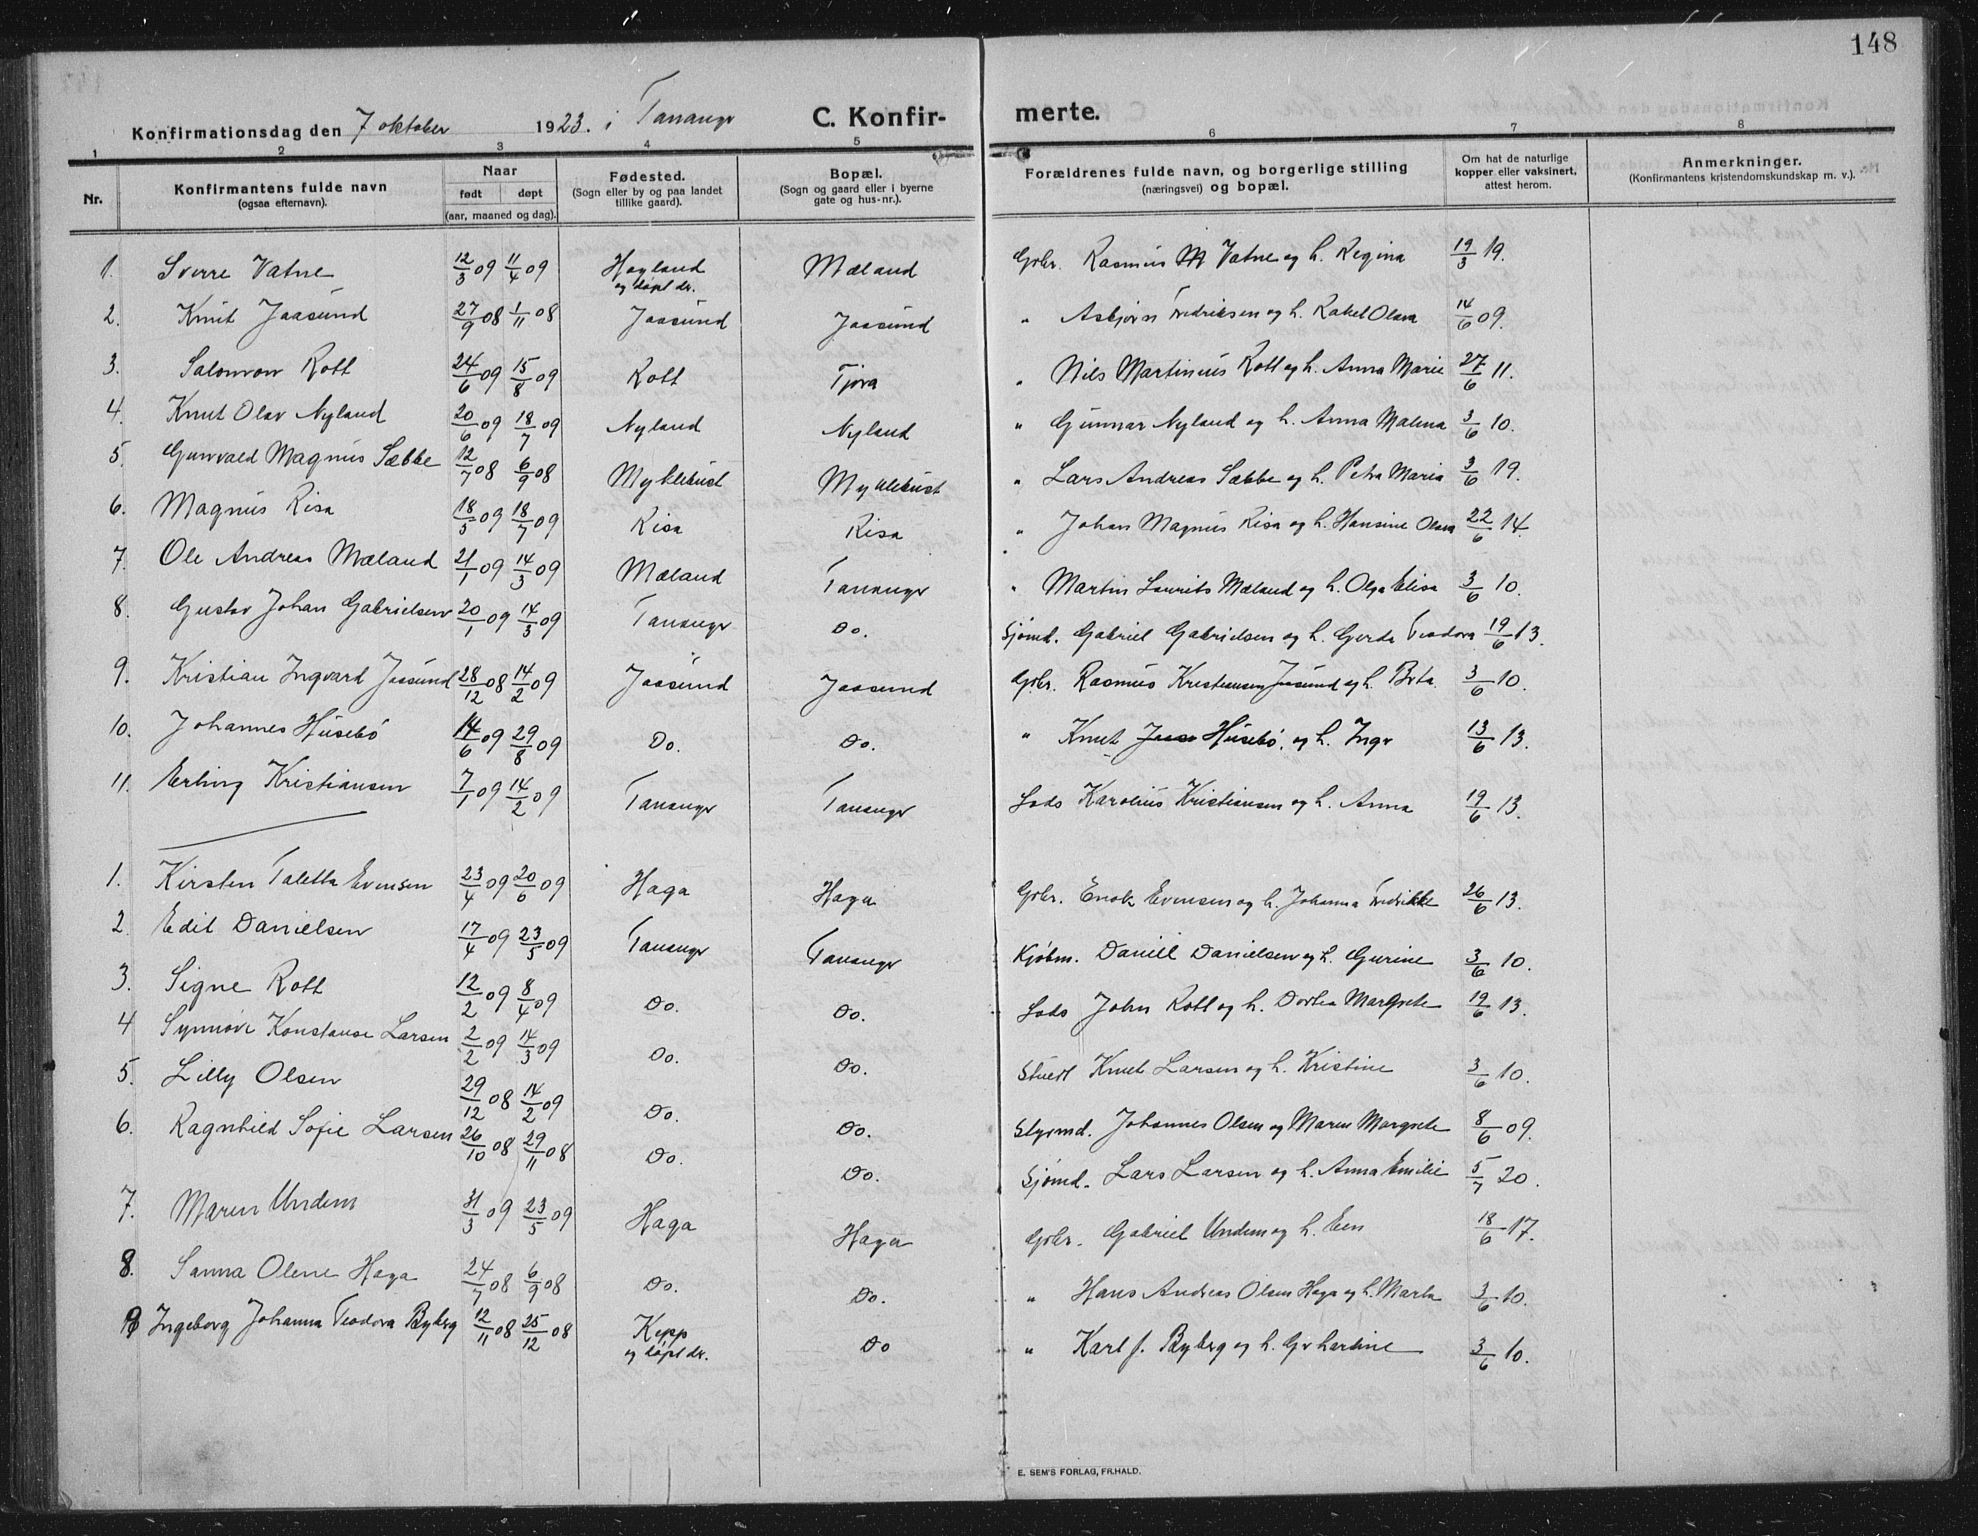 148
Konfirmationsdag den 7 oktober 1923. i Tananger C. Konfir- merte.
1 2 3 4 5 6 7 8
Nr. Konfirmantens fulde navn (ogsaa efternavn). Naar født døpt (aar, maaned og dag). Fødested. (Sogn eller by og paa landet tillike gaard). Bopæl. (Sogn og gaard eller i byerne gate og hus-nr.). Forældrenes fulde navn, og borgerlige stilling (næringsvei) og bopæl. Om hat de naturlige kopper eller vaksinert, attest herom. Anmerkninger. (Konfirmantens kristendomskundskap m. v.).
1. Sverre Vatne 12/3 09 11/4 09 Høyland og døpt dr. Mæland Gbr. Rasmus M Vatne og h. Regina 19/3 19.
2. Knut Jaasund 27/9 08 1/11 08 Jaasund Jaasund " Asbjørn Fredriksen og h. Rakel Olava 14/6 09.
3. Salomon Rott 24/6 09 15/8 09 Rott Tjora " Nils Martinius Rott og h. Anna Marie 27/6 11.
4. Knut Olav Nyland 20/6 09 18/7 09 Nyland Nyland " Gunnar Nyland og h. Anna Malena 3/6 10.
5. Gunvald Magnus Sæbbe 12/7 08 6/9 08 Myklebust Myklebust " Lars Andreas Sæbbe og h. Petra Maria 3/6 19.
6. Magnus Risa 18/5 09 18/7 09 Risa Risa " Johan Magnus Risa og h. Hansine Olava 22/6 14.
7. Ole Andreas Mæland 21/1 09 14/3 09 Mæland Tananger " Martin Laurits Mæland og h. Olga Elisa 3/6 10.
8. Gustav Johan Gabrielsen 20/1 09 14/3 09 Tananger Do. Sjømd. Gabriel Gabrielsen og h. Gerda Teodora 19/6 13.
9. Kristian Ingvard Jaasund 28/12 08 14/2 09 Jaasund Jaasund Gbr. Rasmus Kristiansen Jaasund og h. Berta 3/6 10.
10. Johannes Húsebø 14/6 09 29/8 09 Do. Do. " Knut Húsebø. og h. Inger 13/6 13.
11. Erling Kristiansen 7/1 09 14/2 09 Tananger Tananger Lods Karolius Kristiansen og h. Anna 19/6 13.
1. Kirsten Taletta Evensen 23/4 09 20/6 09 Haga Haga Gbr. Enok Evensen og h. Johanna Fredrikke 26/6 13.
2. Edit Danielsen 17/4 09 23/5 09 Tananger Tananger Kjøbm. Daniel Danielsen og h. Gurine 3/6 10.
3. Signe Rott 12/2 09 8/4 09 Do. Do. Lods John Rott og h. Dortea Margrete 19/6 13.
4 Synnøve Konstanse Larsen 2/2 09 14/3 09 Do. Do. Stuert Knut Larsen og h. Kristine 3/6 10.
5. Lilly Olsen 29/12 08 14/2 09 Do. Do. Styrmd. Johannes Olsen og Maren Margrete 8/6 09.
6. Ragnhild Sofie Larsen 26/10 08 29/11 08 Do. Do. Sjømd. Lars Larsen og h. Anna Emilie 5/7 20.
7. Maren Undem 31/3 09 23/5 09 Haga Haga Gbr. Gabriel Undem og h. Een 18/6 17.
8. Sanna Olene Haga 24/7 08 6/9 08 Do. Do. " Hans Andreas Olsen Haga og h. Marta 3/6 10.
9 Ingeborg Johanna Teodora Byberg 12/11 08 25/12 08 Kepp og døpt dr. Do " Karl J. Byberg og h. Gerhardine 3/6 10.
E. SEM'S FORLAG, FR.HALD.